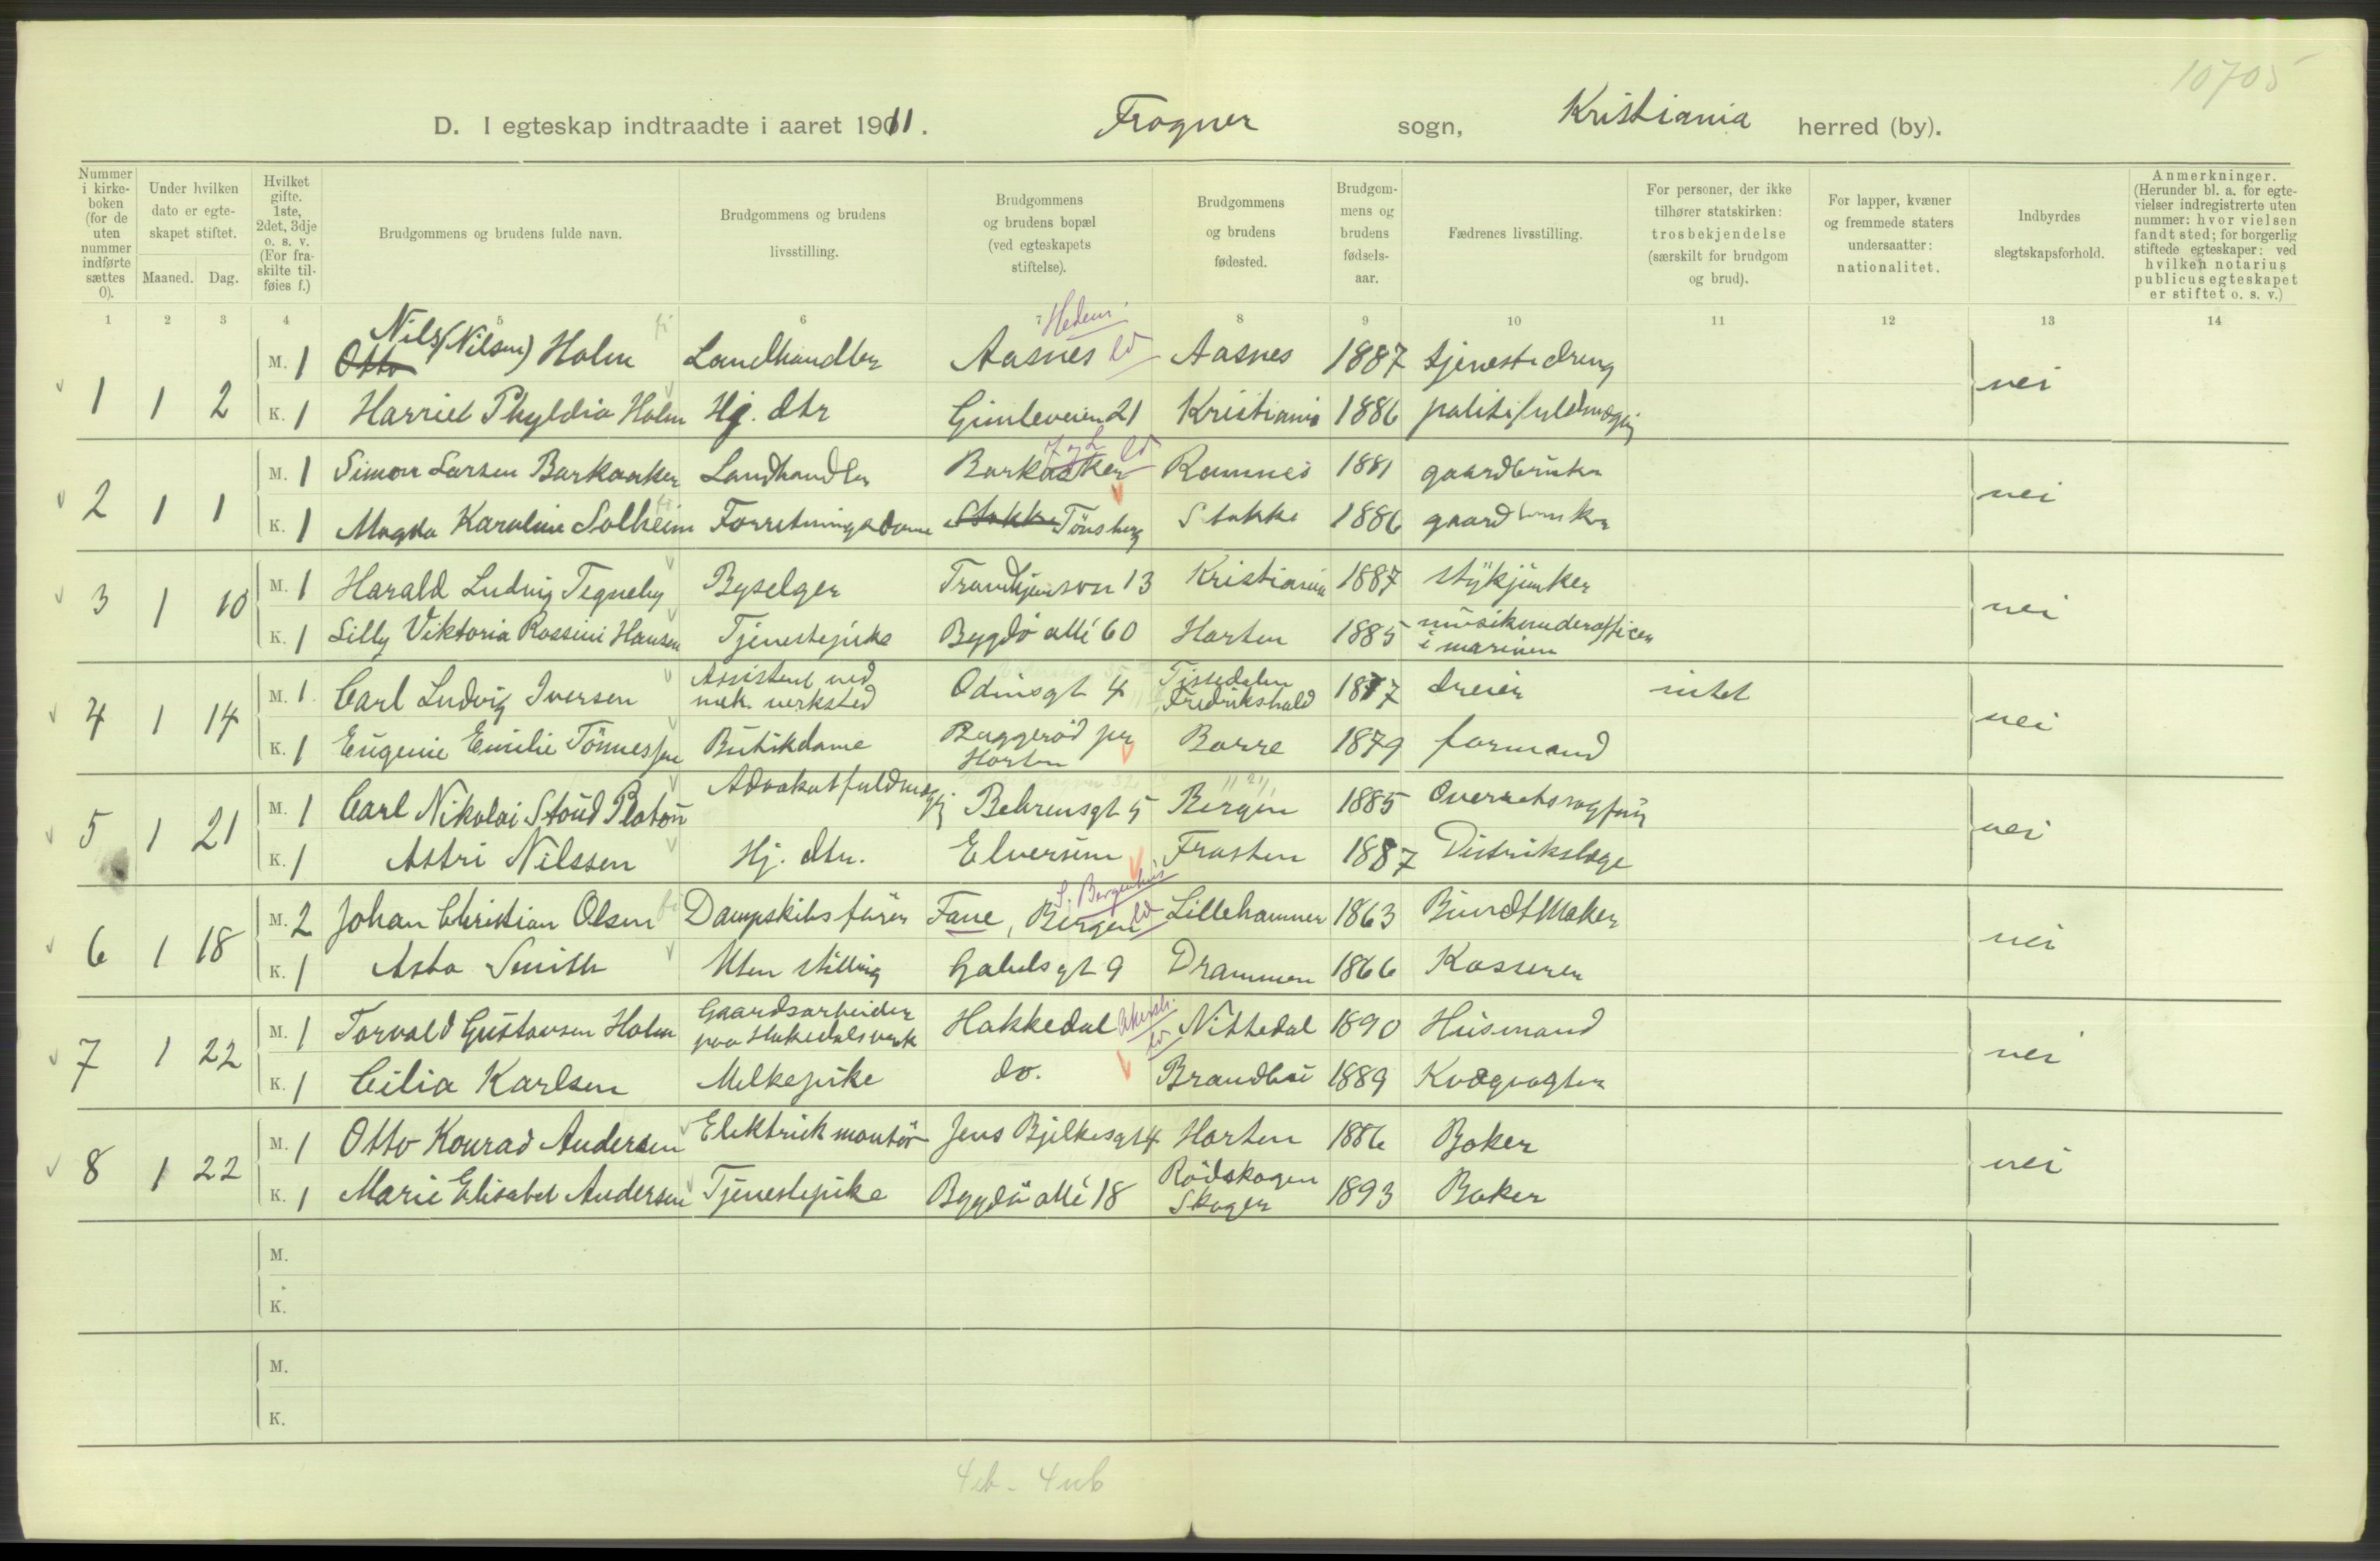 10705
D. I egteskap indtraadte i aaret 1911. Frogner sogn, Kristiania herred (by).
Nummer i kirkeboken (for de uten nummer indførte sættes 0). Under hvilken dato er egteskapet stiftet. Maaned. Dag. Hvilket gifte. 1ste, 2det, 3dje o. s. v. (For fraskilte tilføies f.) Brudgommens og brudens fulde navn. Brudgommens og brudens livsstilling. Brudgommens og brudens bopæl (ved egteskapets stiftelse). Brudgommens og brudens fødested. Brudgommens og brudens fødselsaar. Fædrenes livsstilling. For personer, der ikke tilhører statskirken: trosbekjendelse (særskilt for brudgom og brud). For lapper, kvæner og fremmede staters undersaatter: nationalitet. Indbyrdes slegtskapsforhold. Anmerkninger. (Herunder bl. a. for egtevielser indregistrerte uten nummer: hvor vielsen fandt sted; for borgerlig stiftede egteskaper: ved hvilken notarius publicus egteskapet er stiftet o. s. v.)
1 2 3 4 5 6 7 8 9 10 11 12 13 14
Hedem
M. 1 Otto Nils (Nilsen) Holm Landhandler Aasnes ld Aasnes 1887 tjenestedreng
1 1 2 nei
K. 1 Harriet Phyldia Holm Hj. dtr Gimleveien 21 Kristiania 1886 politifuldmægtig
M. 1 Simon Larsen Barkaaker Landhandler Barkaaker ld Ramnes 1881 gaardbruker
2 1 1 nei
K. 1 Magda Karoline Solheim Forretningsdame Stokke Tönsberg Stokke 1886 gaardbruker
M. 1 Harald Ludvig Tegneby Byselger Trondhjemsvn 13 Kristiania 1887 stykjunker
3 1 10 nei
K. 1 Lilly Viktoria Rossini Hansen Tjenestepike Bygdö allé 60 Horten 1885 musikunderofficer i marinen
M. 1 Carl Ludvig Iversen Assistent ved mek. verksted Odinsgt 4 Tistedalen Fredrikshald 1877 dreier intet
4 1 14 nei
K. 1 Eugenie Emilie Tönnessen Butikdame Buggeröd pr Horten Borre 1879 formand
M. 1 Carl Nikolai Stoud Platou Advokatfuldmægtig Behrensgt 5 Bergen 1885 Overretssagförer
5 1 21 nei
K. 1 Astri Nilssen Hj. dtr. Elverum Frosten 1887 Distriktslæge
S. Bergenhus
M. 2 Johan Christian Olsen Dampskibsförer Fane, Bergen ld Lillehammer 1863 Bundtmaker
6 1 18 nei
K. 1 Asta Smith Uten stilling Gabelsgt 9 Drammen 1866 Kasserer
M. 1 Torvald Gustavsen Holm Gaardsarbeider paa Hakedalsverk Hakkedal Akersh. ld Nittedal 1890 Husmand
7 1 22 nei
K. 1 Cilia Karlsen Melkepike do. Brandbu 1889 Kvægvogter
M. 1 Otto Konrad Andersen Elektrisk montör Jens Bjelkesgt 4 Horten 1886 Baker
8 1 22 nei
K. 1 Marie Elisabet Andersen Tjenestepike Bygdö allé 18 Rödskogen Skoger 1893 Baker
M.
K.
M.
K.
4 eb - 4 ub